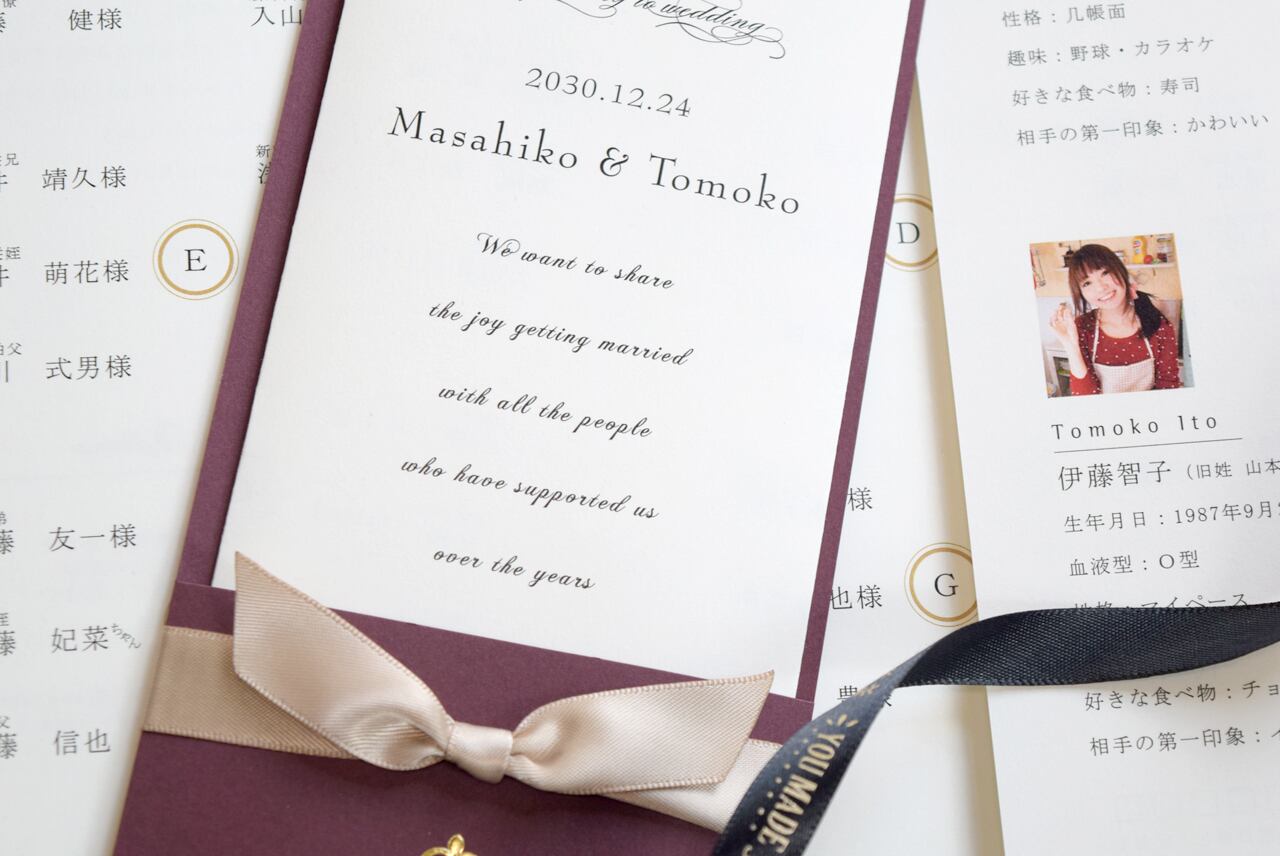 健様
入山
靖久様
萌花様
E
式男様
友一様
妃菜ちゃん
信也
to wedding
2030.12.24
Masahiko & Tomoko
We want to share
the joy getting married
with all the people
who have supported us
over the years
D
様
也様
G
YOU MADE
性格：几帳面
趣味：野球・カラオケ
好きな食べ物：寿司
相手の第一印象：かわいい
Tomoko Ito
伊藤智子（旧姓 山本
生年月日：1987年9月
血液型：O型
性格：マイペース
好きな食べ物：チョ
相手の第一印象：イ